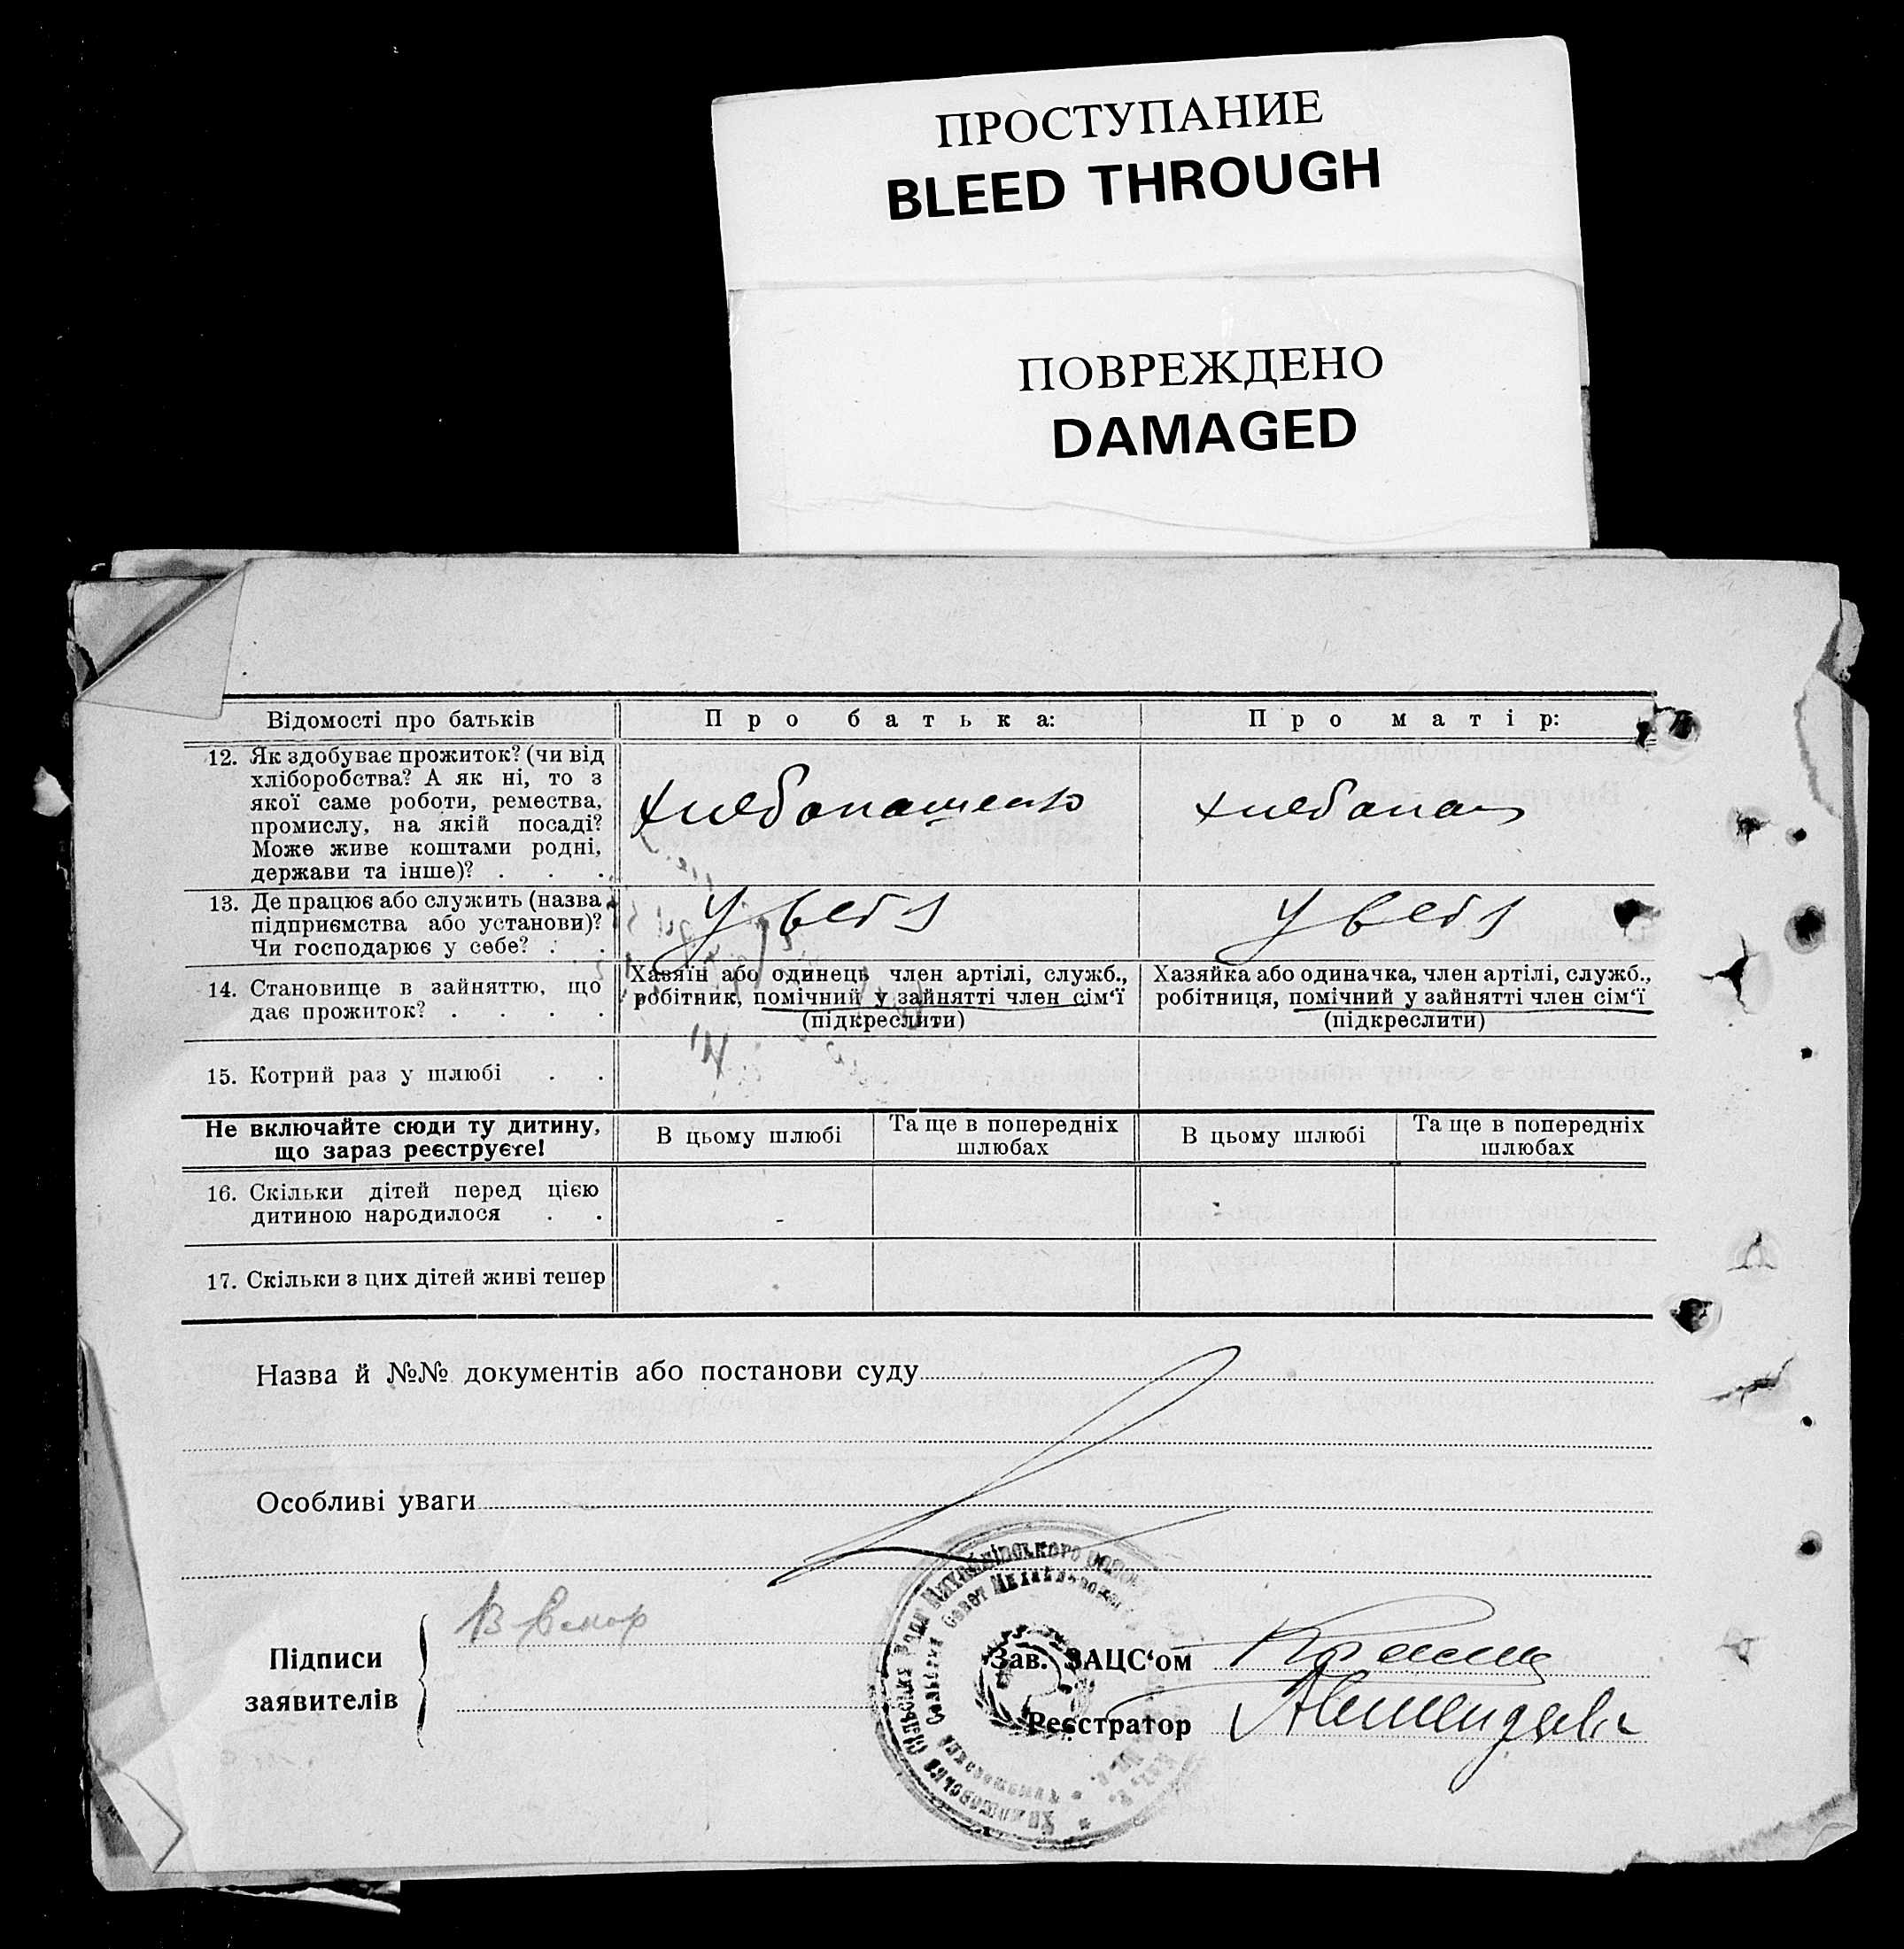 ПРОСТУПАНИЕ
BLEED THROUGH
ПОВРЕЖДЕНО
DAMAGED
Відомості про батьків
Про батька:
Про матір:
12. Як здобуває прожиток? (чи від
хліборобства? А як ні, то з
якої саме роботи, ремества,
промислу, на якій посаді?
Може живе коштами родні,
держави та інше)? . . .
13. Де працює або служить (назва
підприємства або установи)?
Чи господарює у себе? . .
у себя
у себя
14. Становище в зайняттю, що
дає прожиток? . . . .
Хазяїн або одинець член артілі, служб.,
робітник, помічний у зайнятті член сім'ї
(підкреслити)
Хазяйка або одиначка, член артілі, служб.,
робітниця, помічний у зайнятті член сім'ї
(підкреслити)
15. Котрий раз у шлюбі . .
Не включайте сюди ту дитину,
що зараз реєструєте!
В цьому шлюбі
Та ще в попередніх
шлюбах
В цьому шлюбі
Та ще в попередніх
шлюбах
16. Скільки дітей перед цією
дитиною народилося . .
17. Скільки з цих дітей живі тепер
Назва й №№ документів або постанови суду
Особливі уваги
Підписи
заявителів
Зав. ЗАЦС'ом
Реєстратор